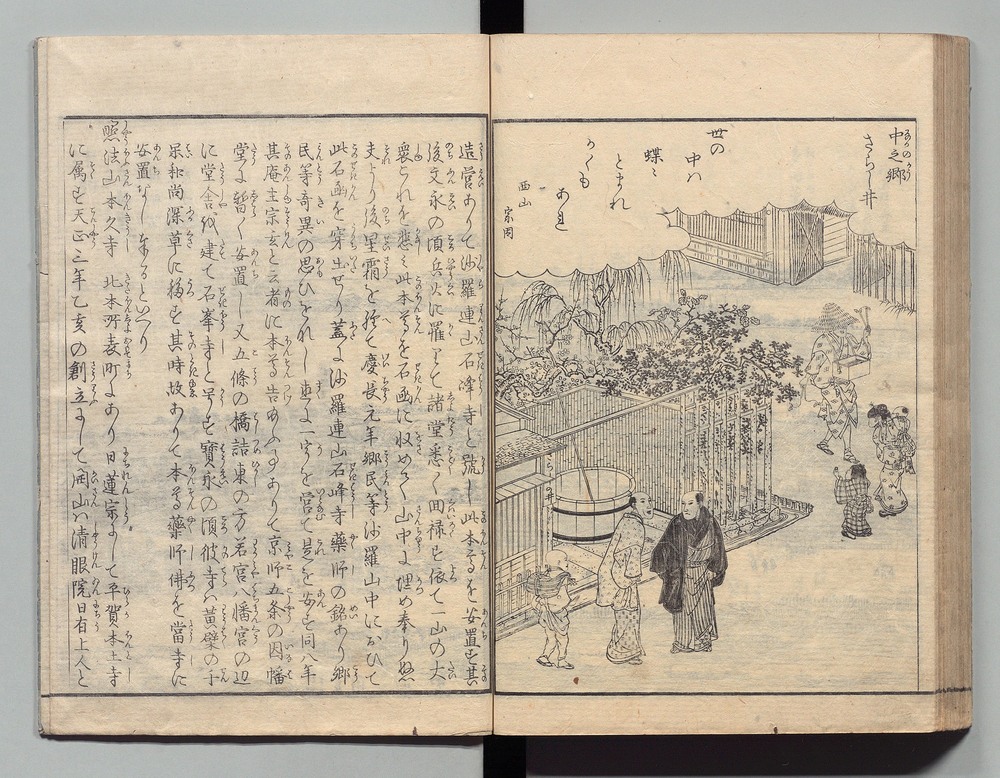 中之郷
さらし井
世の
中ハ
蝶々
とまれ
かくも
あれ
西山
宗因
造営ありて沙羅連山石峰寺と號し此本尊を安置せし其
後文永の頃兵火に罹りて諸堂悉く回禄す依て一山の大
衆これを悲ミ此本尊を石函に収めて山中に埋め奉りぬ然
しより後星霜を経て慶長元年郷民等沙羅山中において
此石函を穿出せり蓋に沙羅連山石峰寺薬師の銘あり郷
民等奇異の思ひをなし直に一宇を営て是を安す同八年
其庵主宗玄と云者に本尊告あふ事ありて京師五条の因幡
堂に暫く安置し又五條の橋詰東の方若宮八幡宮の辺
に堂舎を建て石峯寺と号す寶永の頃彼寺ハ黄檗の千
呆和尚深草に移す其時故ありて本尊薬師佛を當寺に
安置なし奉るといへり
照法山本久寺 北本所表町にあり日蓮宗にして平賀本土寺
に属す天正三年乙亥の創立にして開山ハ清眼院日有上人と